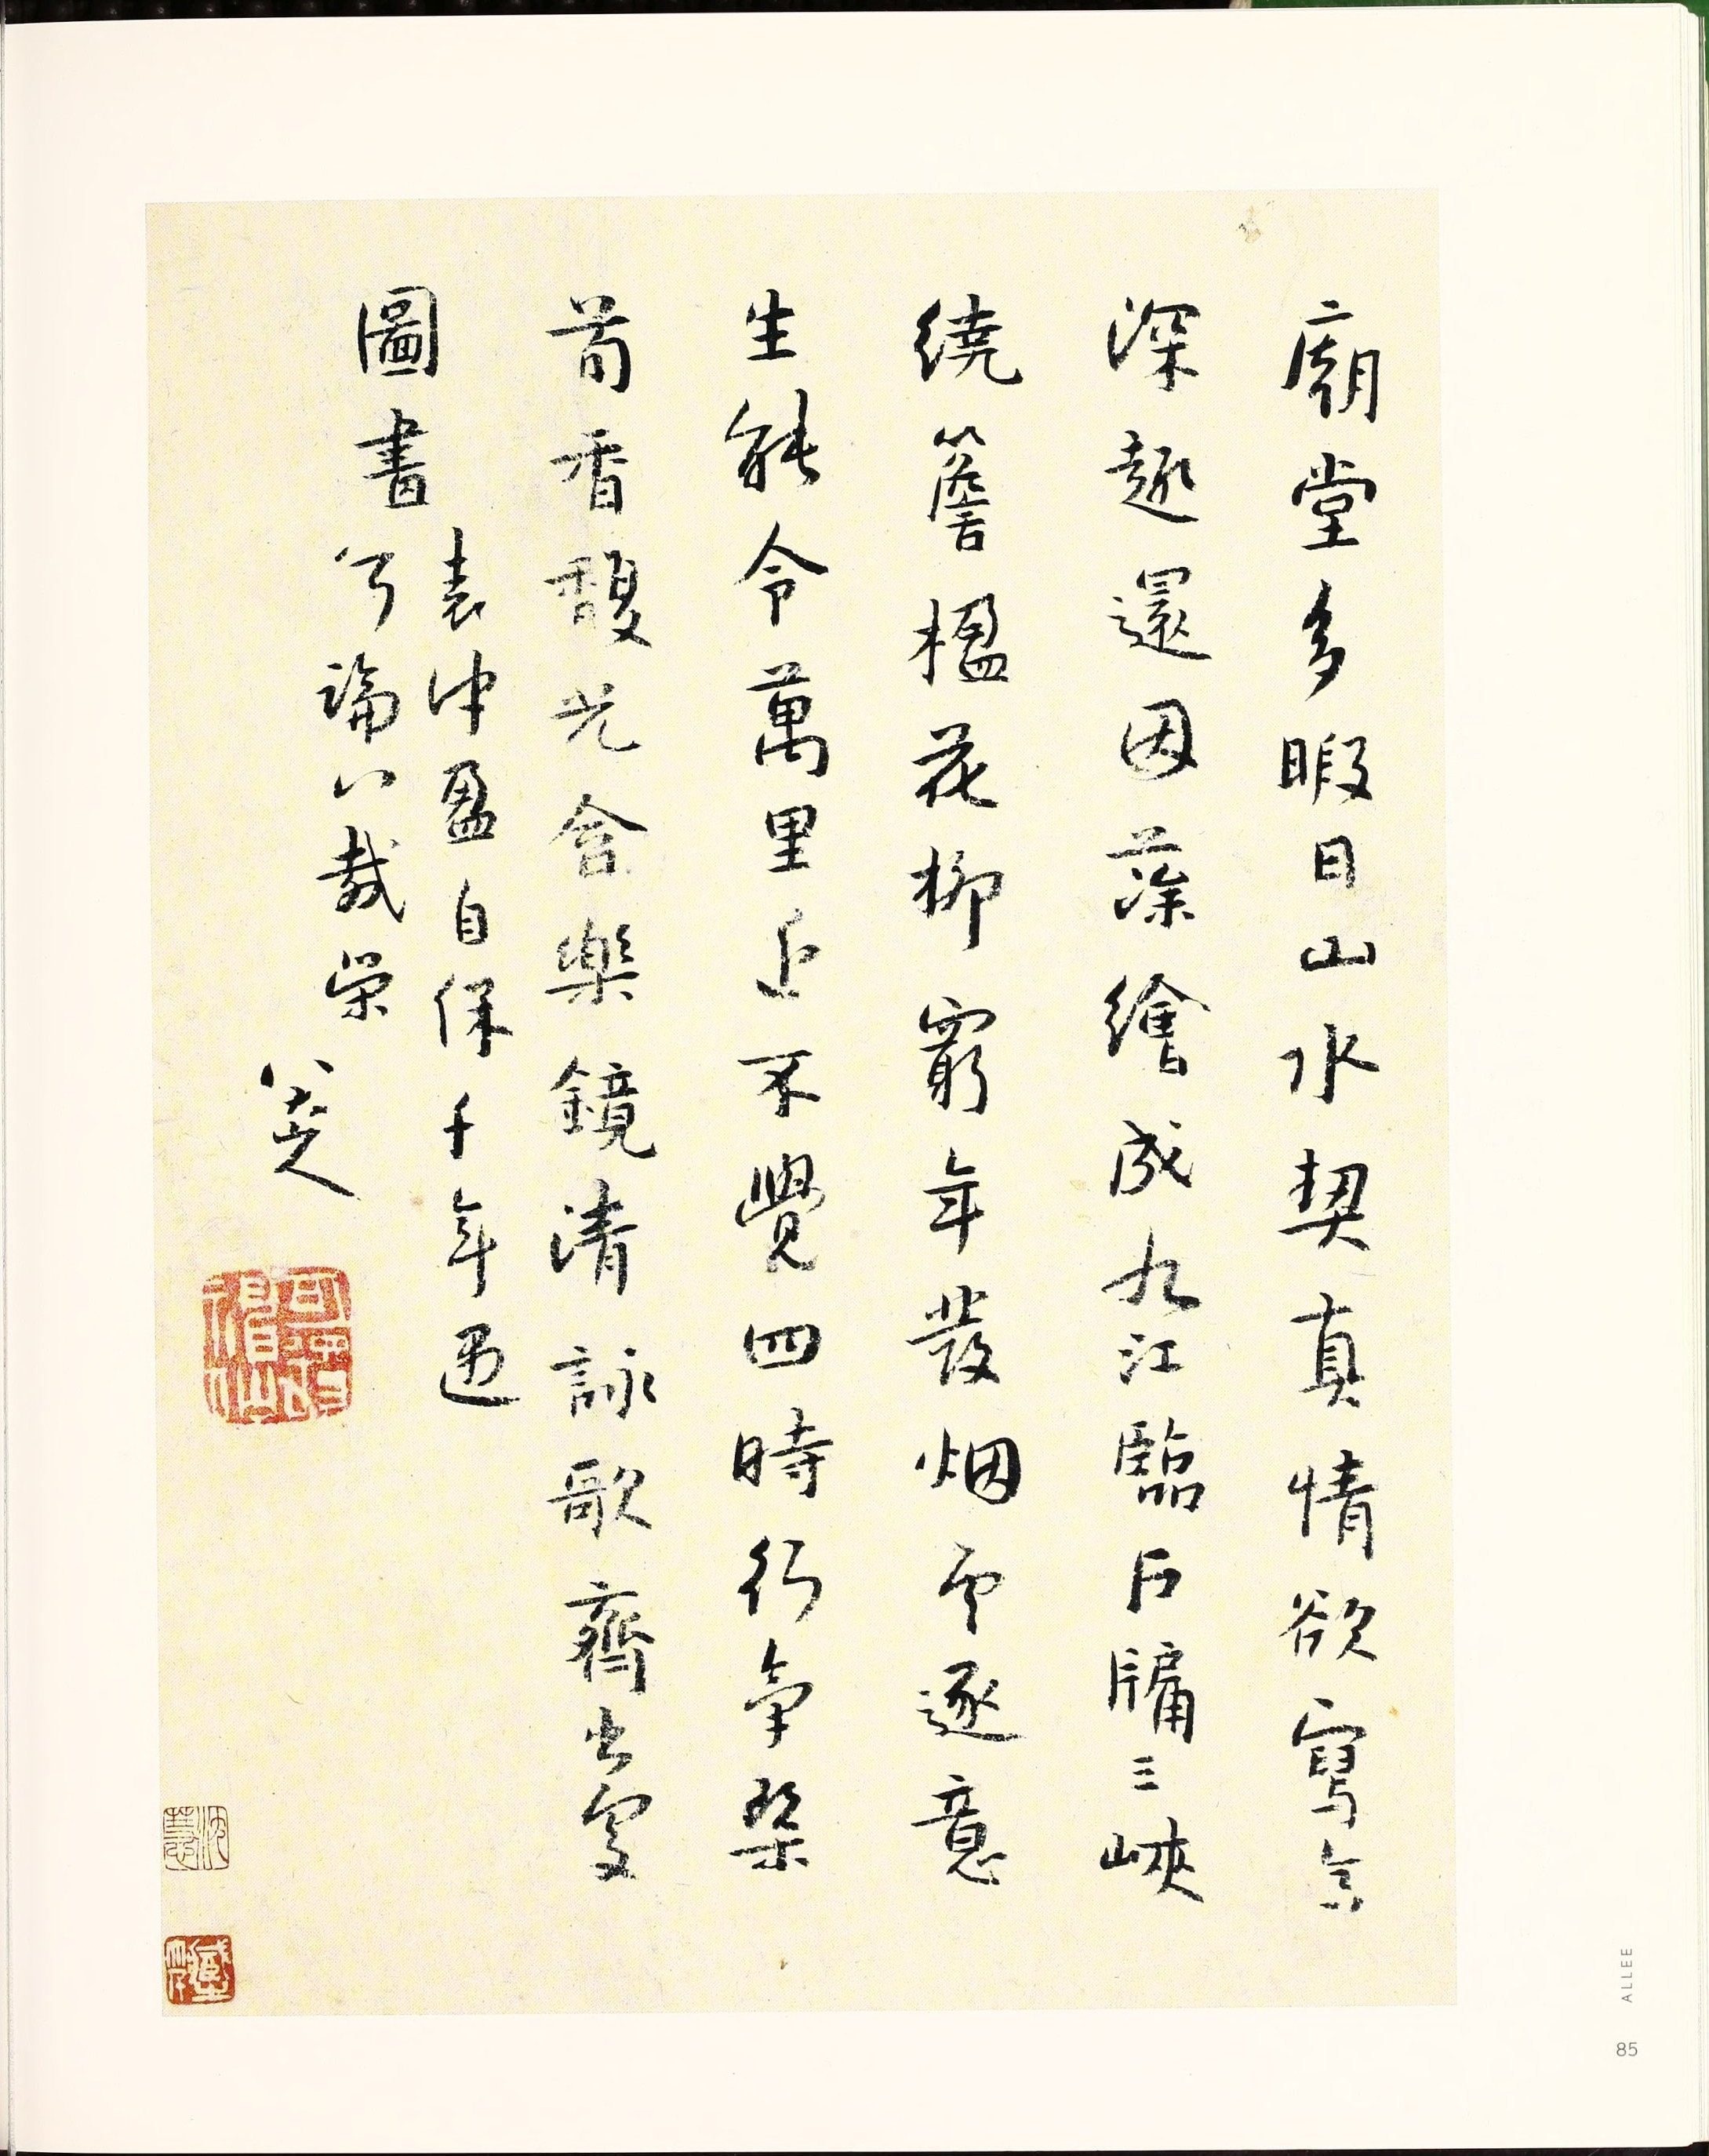 廟堂多暇日山水契真情欲寫高
深趣還因藻繪成九江臨戶牖三峽
繞簷楹花柳窮年發烟雲逐意
生能令萬里近不覺四時行氣染
荀香馥光含樂鏡清詠歌齊出處
圖書
表沖盈自保千年遇
何論八載榮
八大山人
可得神仙
ALLEE
85